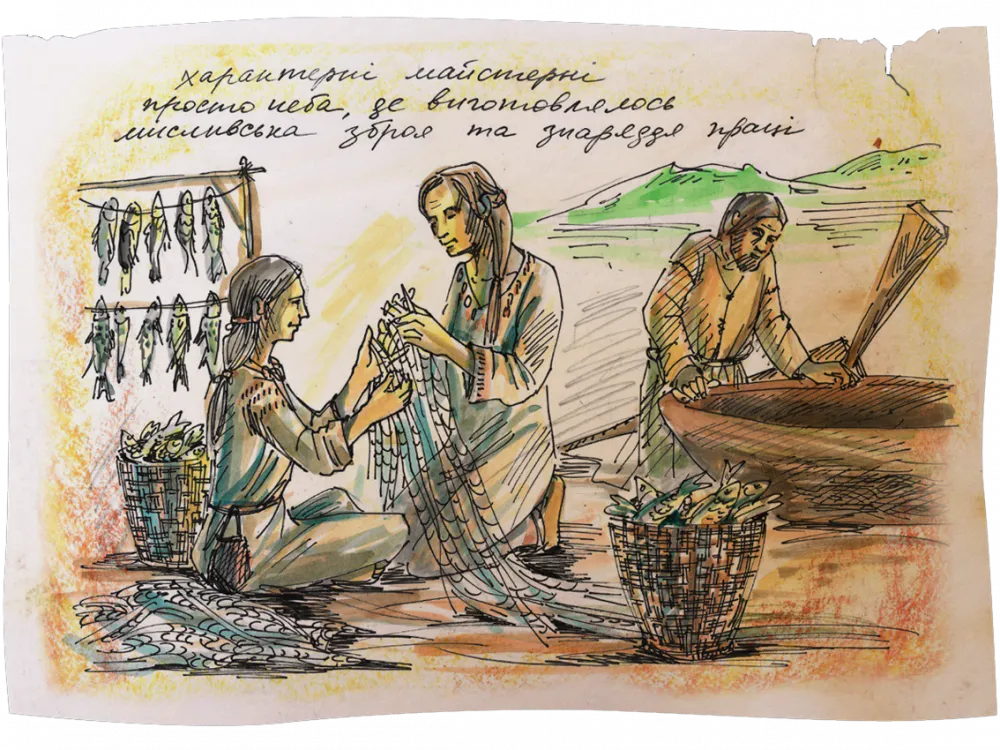 характерні майстерні
просто неба, де виготовлялось
мисливська зброя та знаряддя праці